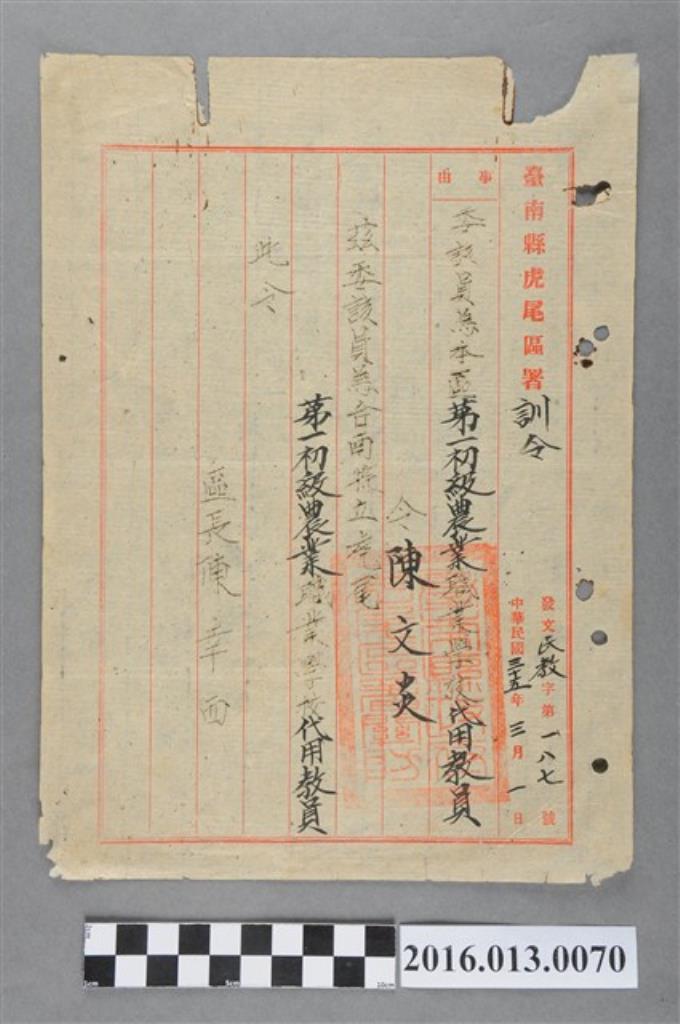 臺南縣虎尾區署訓令
發文民教字第一八七號
中華民國三十五年三月一日
事由
委該員為本區第一初級農業職業學校代用教員
令陳文炎
茲委該員為台南縣立虎尾
第一初級農業職業學校代用教員
此令
區長陳
2016.013.0070
5cm
10cm